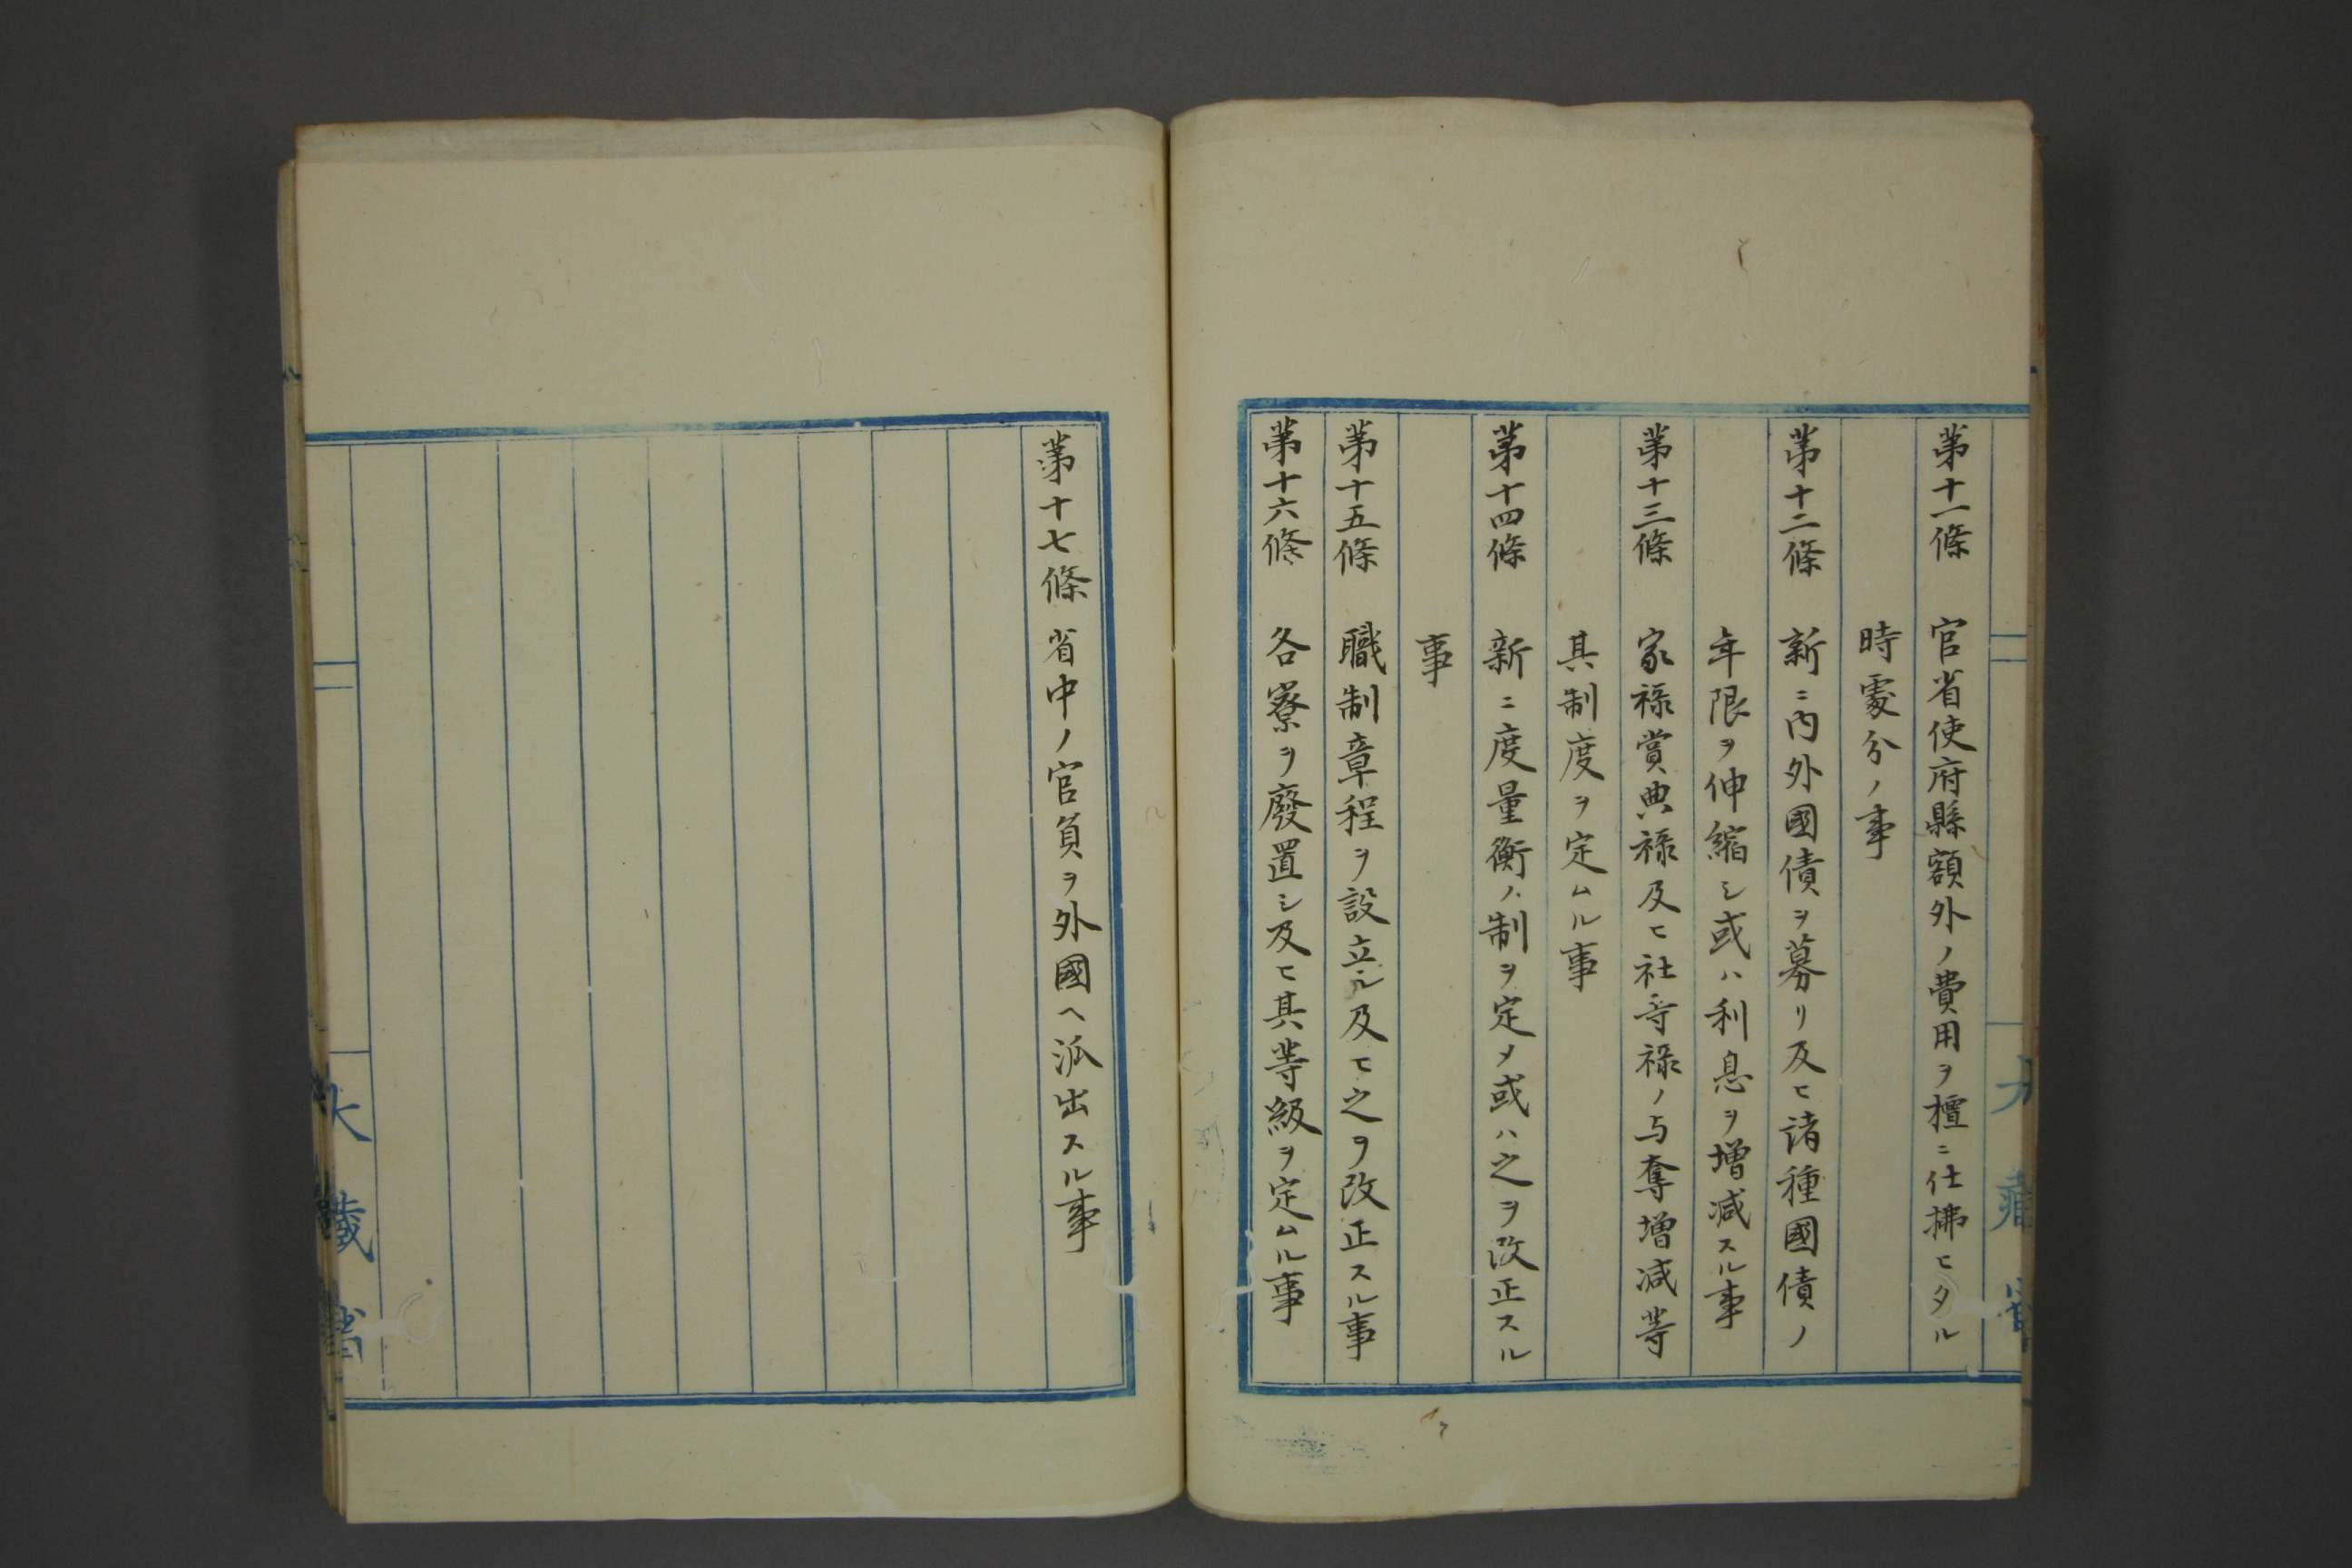 第十一條 官省使府縣額外ノ費用ヲ擅ニ仕拂ヒタル
時處分ノ事
第十二條 新ニ内外國債ヲ募リ及ヒ諸種國債ノ
年限ヲ伸縮シ或ハ利息ヲ增減スル事
第十三條 家祿賞典祿及ヒ社寺祿ノ与奪增減等
其制度ヲ定ムル事
第十四條 新ニ度量衡ノ制ヲ定メ或ハ之ヲ改正スル
事
第十五條 職制章程ヲ設立シ及ヒ之ヲ改正スル事
第十六條 各寮ヲ廢置シ及ヒ其等級ヲ定ムル事
第十七條 省中ノ官員ヲ外國ヘ派出スル事
大藏省
大藏省